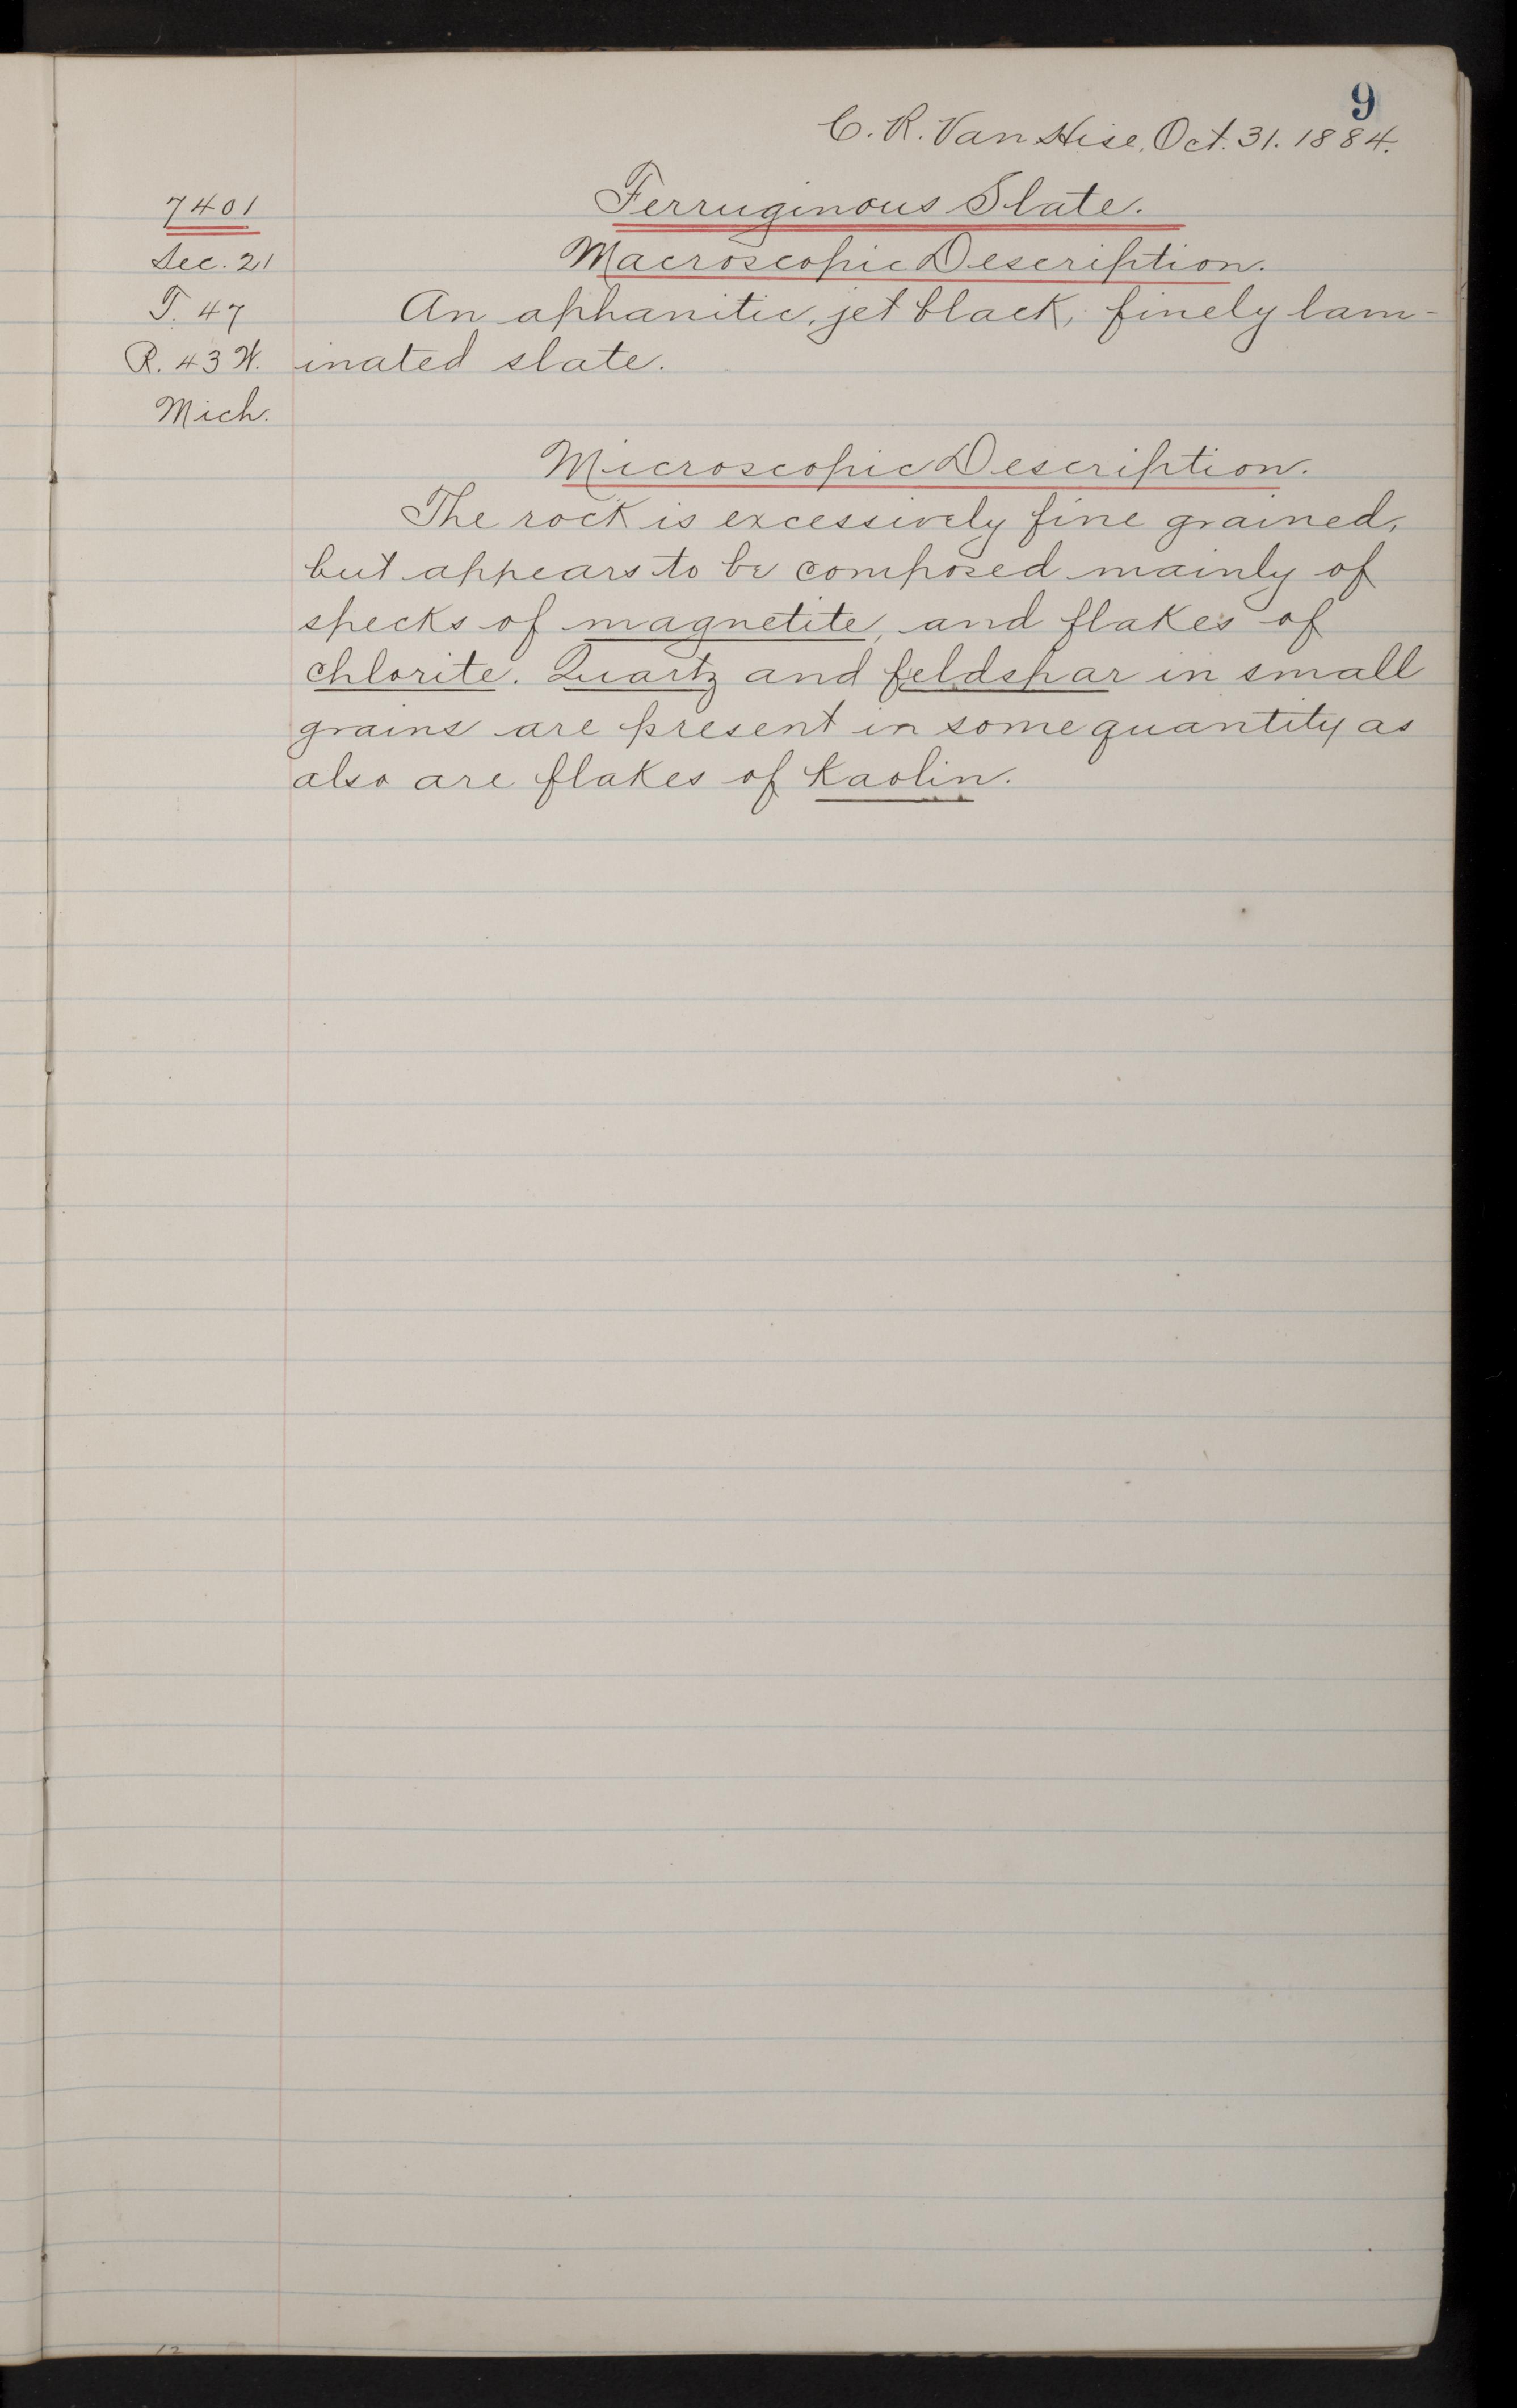 9
C. R. Van Hise, Oct. 31. 1884.
7401
Ferruginous Slate.
Sec. 21
Macroscopic Description.
T. 47
An aphanitic, jet black, finely lam-
R. 43 W.
inated slate.
Mich.
Microscopic Description.
The rock is excessively fine grained,
but appears to be composed mainly of
specks of magnetite, and flakes of
chlorite. Quartz and feldspar in small
grains are present in some quantity as
also are flakes of kaolin.